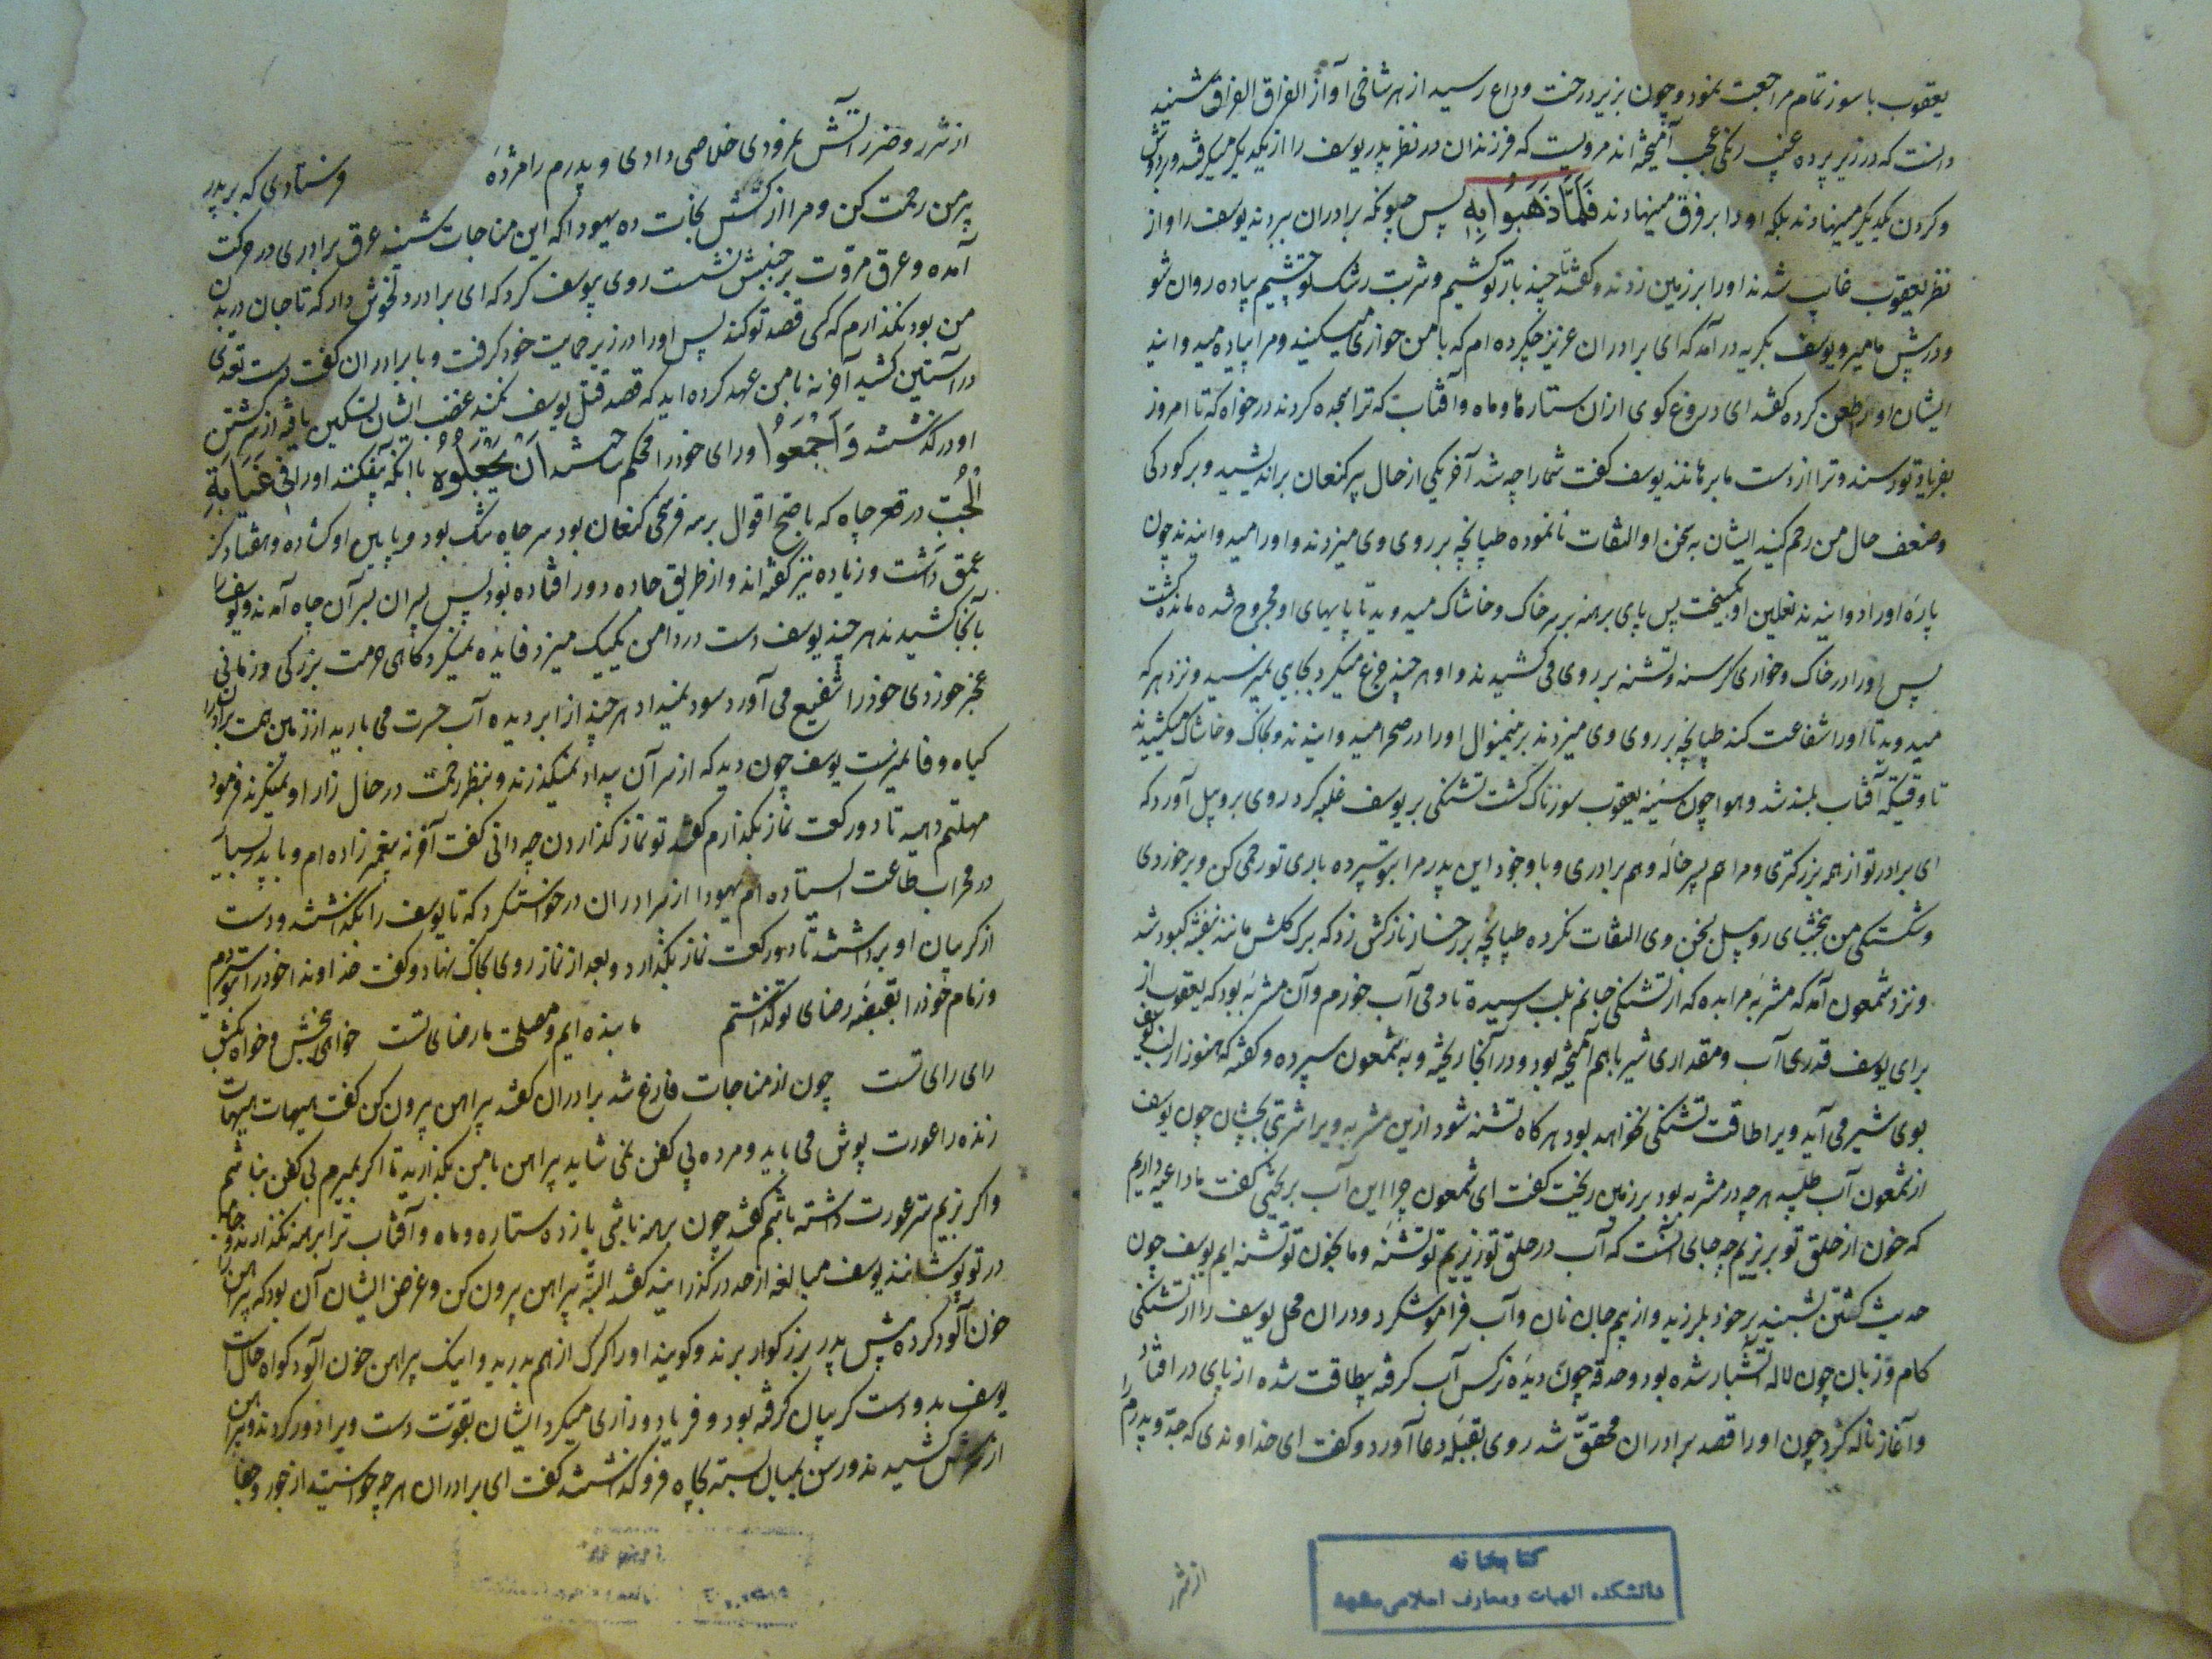 یعقوب با سوز تمام مراجعت نمود و چون بزیر درخت وداع رسید از هر شاخی آواز الفراق الفراق شنید
دانست که در زیر پرده غیب رنگی عجب آمیخته اند مرویست که فرزندان در نظر پدر یوسف را از یکدیگر میگرفتند و بر دوش
و گردن یکدیگر مینهادند بلکه او را بر فرق مینهادند فَلَمَّا ذَهَبُوا بِهِ پس چونکه برادران ببردند یوسف را و از
نظر یعقوب غایب شدند او را بر زمین زدند و گفتند تا چند بار تو کشیم و شربت رشک تو چشیم پیاده روان شو
و در پیش ما میرو یوسف بگریه در آمد که ای برادران عزیز چکرده ام که با من خواری میکنید و مرا پیاده میدوانید
ایشان او را طعن کرده گفتند ای دروغ گوی ازان ستارها و ماه و آفتاب که ترا سجده کردند درخواه که تا امروز
بفریاد تو رسند و ترا از دست ما برهانند یوسف گفت شما را چه شد آخر یکی از حال پیر کنعان براندیشید و بر کودکی
و ضعف حال من رحم کنید ایشان به سخن او التفات نانموده طپانچه بر روی وی میزدند و او را میدوانیدند چون
پارۀ او را دوانیدند نعلین او بگسیخت پس پای برهنه بر سر خاک و خاشاک میدوید تا پایهای او مجروح شده مانده گشت
پس او را در خاک و خواری گرسنه و تشنه بر روی می کشیدند و او هر چند جزع میکرد بجایی نمیرسید و نزد هر که
میدوید تا او را شفاعت کند طپانچه بر روی وی میزدند برینمنوال او را در صحرا میدوانیدند و بخاک و خاشاک میکشیدند
تا وقتیکه آفتاب بلند شد و هوا چون سینۀ یعقوب سوزناک گشت تشنگی بر یوسف غلبه کرد روی بروبیل آورد که
ای برادر تو از همه بزرگتری و مرا هم پسر خاله و هم برادری و با وجود این پدر مرا بتو سپرده باری تو رحمی کن و بر خوردی
و شکستگی من ببخشای روبیل بسخن وی التفات نکرده طپانچه بر رخسار نازکش زد که برک گلش مانند بنفشه کبود شد
و نزد شمعون آمد که مشربۀ مرا بده که از تشنگی جانم بلب رسیده تا دمی آب خورم و آن مشربۀ بود که یعقوب از
برای یوسف قدری آب و مقداری شیر با هم آمیخته بود و در آنجا ریخته و به شمعون سپرده و گفته که هنوز از لب یوسف
بوی شیر می آید و یرا طاقت تشنگی نخواهد بود هر گاه تشنه شود ازین مشربه ویرا شربتی بچشان چون یوسف
از شمعون آب طلبید هر چه در مشربه بود بر زمین ریخت گفت ای شمعون چرا این آب بریختی گفت ما داعیه داریم
که خون از حلق تو بریزیم چه جای آنست که آب در حلق تو ریزیم تو تشنۀ و ما بخون تو تشنه ایم یوسف چون
حدیث کشتن بشنید بر خود بلرزید و از بیم جان نان و آب فراموشکرد و دران محل یوسف را از تشنگی
کام و زبان چون لاله آتشبار شده بود و حدقه چون دیدۀ نرگس آب گرفته بیطاقت شده از پای در افتاد
و آغاز ناله کرد چون او را قصد برادران محقق شد روی بقبلۀ دعا آورد و گفت ای خداوندی که جدّ و پدرم را
از شرر
کتابخانه
دانشکده الهیات و معارف اسلامی مشهد
از شرر و ضرر آتش نمرودی خلاصی دادی و پدرم را مژدۀ فرستادی که بر پدر
پیر من رحمت کن و مرا از کشتن نجات ده یهودا که این مناجات شنید عرق برادری در حرکت
آمده و عرق مروت بر جبینش نشست روی بیوسف کرد که ای برادر دلخوش دار که تا جان در بدن
من بود نگذارم که کسی قصد تو کند پس او را در زیر حمایت خود گرفت و با برادران گفت دست تعدی
در آستین کشید آخر نه با من عهد کرده اید که قصد قتل یوسف نکنید غضب ایشان تسکین یافته از سر کشتن
او درگذشتند وَ اَجْمَعُوا و رای خود را محکم ساختند اَنْ یَجْعَلُوهُ بانکه بیفکنند او را فی غَیَابَةِ
الْجُبِّ در قعر چاه که باصح اقوال بر سه فرسخی کنعان بود سر چاه تنگ بود و پایین او گشاده و هفتاد گز
عمق داشت و زیاده نیز گفته اند و از طریق جاده دور افتاده بود پس پسران بسر آن چاه آمدند و یوسف را
بآنجا کشیدند هر چند یوسف دست در دامن یکیک میزد فایده نمیکرد گاهی حرمت بزرگی و زمانی
عجز خوردی خود را شفیع می آورد سود نمیداد هر چند از ابر دیده آب حسرت می بارید از زمین همت برادران
گیاه وفا نمیرست یوسف چون دید که از سر آن بیداد نمیگذرند و بنظر رحمت در حال زار او نمینگرند فرمود
مهلتم دهید تا دو رکعت نماز بگذارم گفتند تو نماز گذاردن چه دانی گفت آخر نه پیغمبر زاده ام و با پدر بسیار
در محراب طاعت ایستاده ام یهودا از برادران درخواستکرد که تا یوسف را بگذاشتند و دست
از گریبان او برداشتند تا دو رکعت نماز بگذارد و بعد از نماز روی بخاک نهاد و گفت خداوندا خود را بتو سپردم
و زمام خود را بقبضۀ رضای تو گذاشتم ما بنده ایم و مصلحت ما رضای تست خواهی ببخش و خواه بکش
رای رای تست چون از مناجات فارغ شد برادران گفتند پیراهن بیرون کن گفت هیهات هیهات
زنده را عورت پوش می باید و مرده بی کفن نمی شاید پیراهن بامن بگذارید تا اگر بمیرم بی کفن نباشم
و اگر بزیم ستر عورت داشته باشم گفتند چون برهنه باشی یازده ستاره و ماه و آفتاب ترا برهنه نگذارند و جامه
در تو پوشانند یوسف مبالغه از حد در گذرانید گفتند البته پیراهن بیرون کن و غرض ایشان آن بود که پیراهن را
خون آلود کرده پیش پدر بزرگوار برند و گویند او را گرگ از هم بدرید و اینک پیراهن خون آلود گواه حال است
یوسف بدو دست گریبان گرفته بود و فریاد و زاری میکرد ایشان بقوت دست ویرا دور کردند و پیراهن
از سرش کشیدند و رسن بمیان بسته بچاه فرو گذاشتند گفت ای برادران هر چه خواستید از جور و جفا